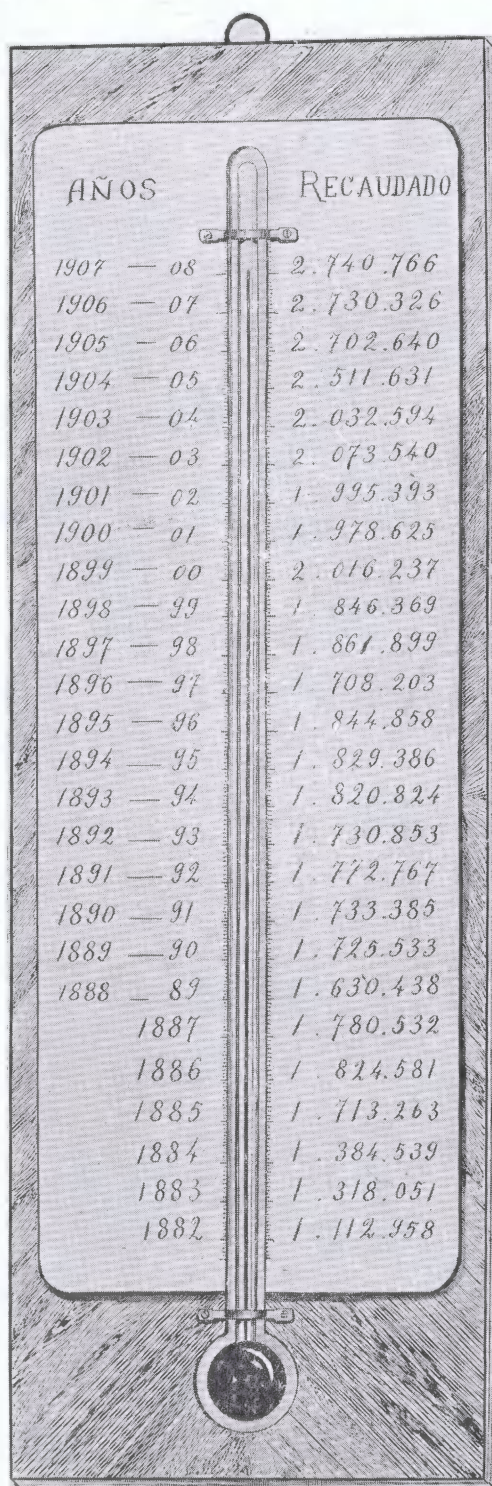 AÑOS RECAUDADO
1907 — 08 2.740.766
1906 — 07 2.730.326
1905 — 06 2.702.640
1904 — 05 2.511.631
1903 — 04 2.032.594
1902 — 03 2.073.540
1901 — 02 1.995.393
1900 — 01 1.978.625
1899 — 00 2.016.237
1898 — 99 1.846.369
1897 — 98 1.861.899
1896 — 97 1.708.203
1895 — 96 1.844.858
1894 — 95 1.829.386
1893 — 94 1.820.824
1892 — 93 1.730.853
1891 — 92 1.772.767
1890 — 91 1.733.385
1889 — 90 1.725.533
1888 — 89 1.630.438
1887 1.780.532
1886 1.824.581
1885 1.713.263
1884 1.384.539
1883 1.318.051
1882 1.112.958